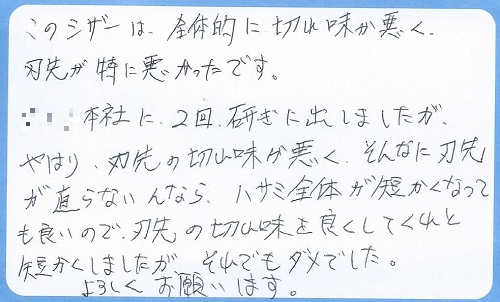 このシザーは、全体的に切れ味が悪く、
刃先が特に悪かったです。
本社に、2回、研ぎに出しましたが、
やはり、刃先の切れ味が悪く、そんなに刃先
が直らないんなら、ハサミ全体が短かくなって
も良いので、刃先の切れ味を良くしてくれと
短かくしましたが、それでもダメでした。
よろしくお願いします。